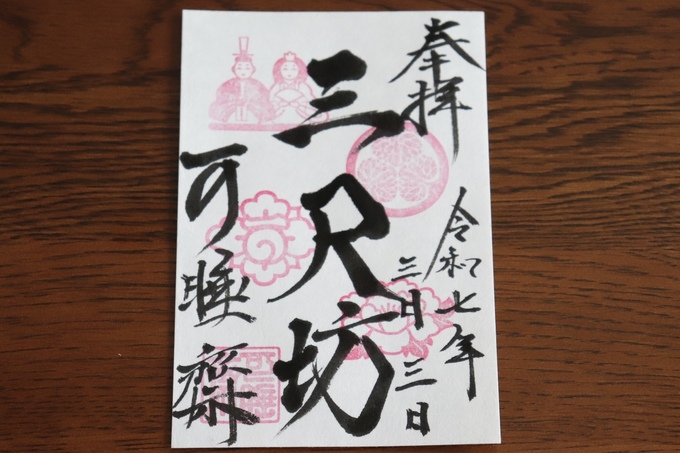 奉拝
令和七年
三月三日
三尺坊
可睡齋